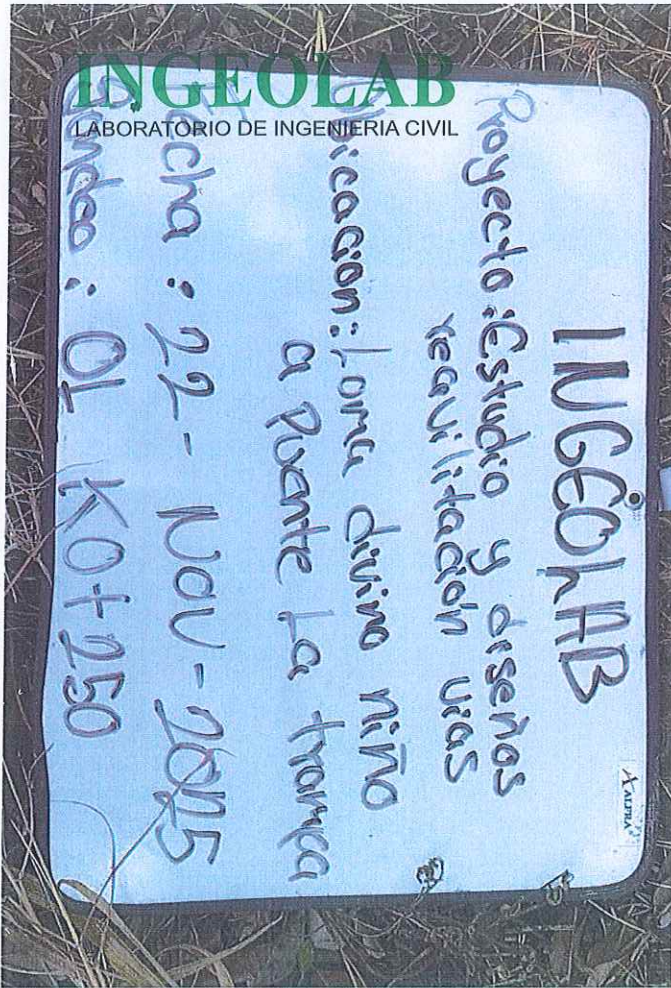 INGEOLAB
LABORATORIO DE INGENIERIA CIVIL
INGEOLAB
Proyecto: Estudio y diseños
reavilitación vias
Ubicacion: Loma divino niño
a Puente La trampa
Fecha: 22- Nov - 2025
Sondeo: 01 K0+250
ALFRA